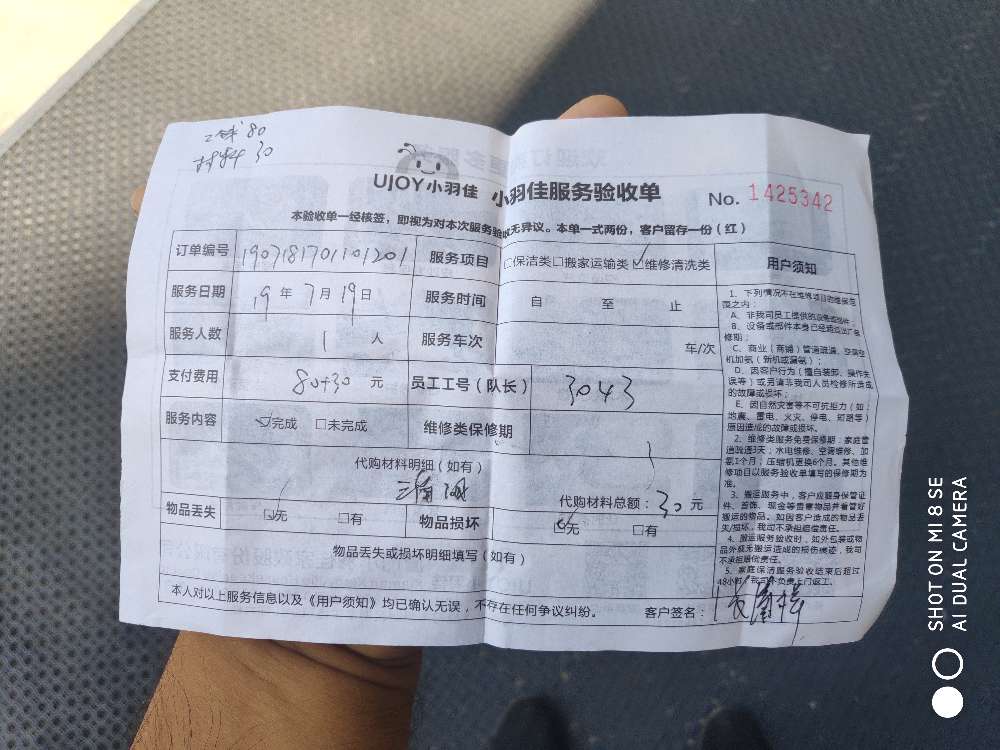 80
材料 30
UJOY小羽佳 小羽佳服务验收单
No. 1425342
本验收单一经核签，即视为对本次服务验收无异议。本单一式两份，客户留存一份（红）
订单编号 1907181701101201 服务项目 □保洁类□搬家运输类☑维修清洗类
服务日期 19年7月19日 服务时间 自 至 止
服务人数 1 人 服务车次 车/次
支付费用 80+30 元 员工工号（队长） 3043
服务内容 ☑完成 □未完成 维修类保修期
代购材料明细（如有）
三角阀 代购材料总额：30元
物品丢失 ☑无 □有 物品损坏 ☑无 □有
物品丢失或损坏明细填写（如有）
本人对以上服务信息以及《用户须知》均已确认无误，不存在任何争议纠纷。 客户签名：
用户须知
1、下列情况不在维修项目的维保范
围之内：
A、非我司员工提供的设备或部件；
B、设备或部件本身已经超过出厂保
修期；
C、商业（商铺）管道疏通、空调挂
机加氨（新机或漏氨）；
D、因客户行为（擅自装卸、操作失
误等）或另请非我司人员检修所造成
的故障或损坏；
E、因自然灾害等不可抗拒力（如：
地震、雷电、火灾、停电、短路等）
原因造成的故障或损坏。
2、维修类服务免费保修期：家庭管
道疏通3天；水电维修、空调维修、加
氨1个月；压缩机更换6个月。其他维
修项目以服务验收单填写的保修期为
准。
3、搬运服务中，客户应随身保管证
件、首饰、现金等贵重物品并看管好
搬运的物品。如因客户造成的物品丢
失/损坏，我司不承担赔偿责任。
4、搬运服务验收时，如外包装或物
品外观无搬运造成的损伤痕迹，我司
不承担赔偿责任。
5、家庭保洁服务验收结束后超过
48小时，我司不负责上门返工。
SHOT ON MI 8 SE
AI DUAL CAMERA